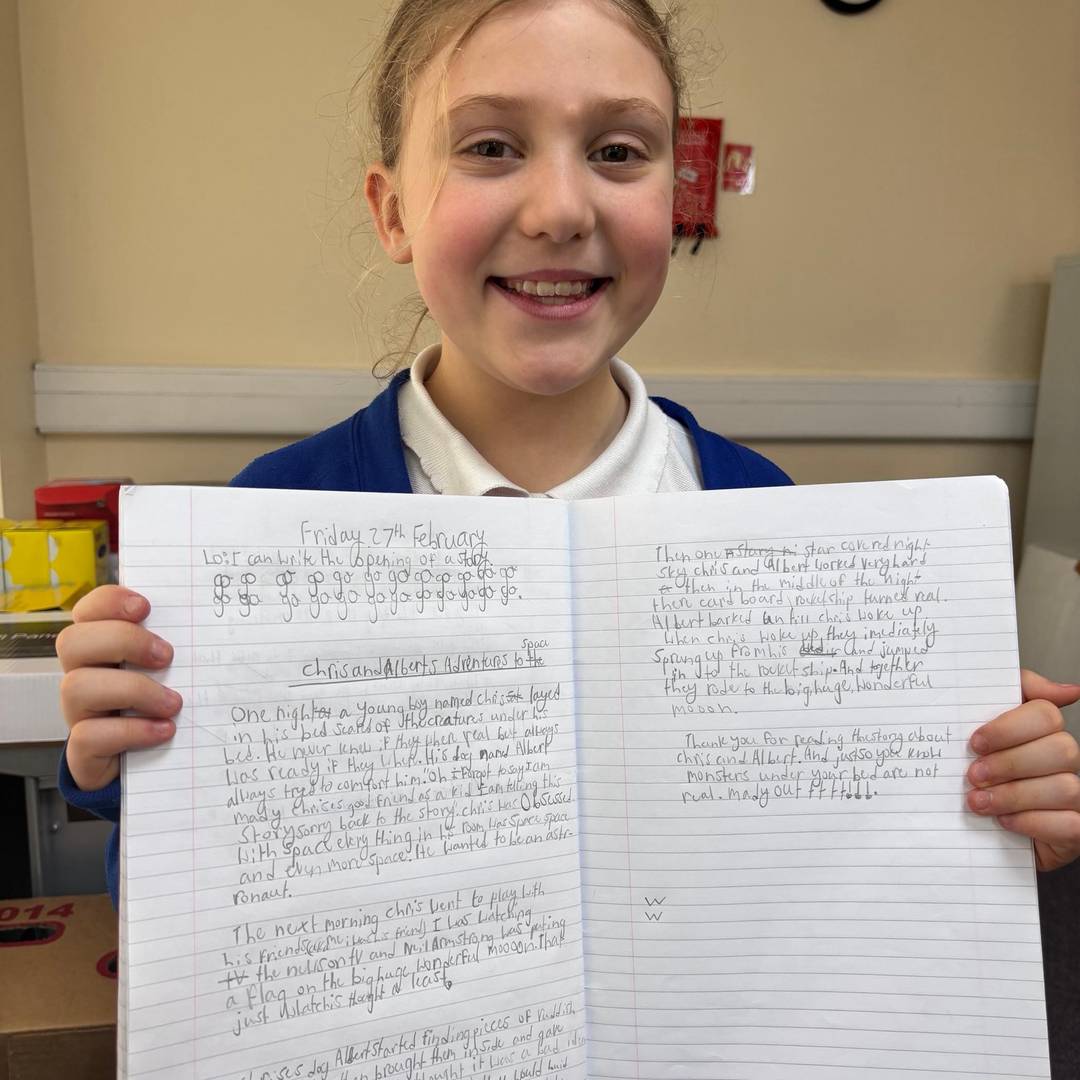 Friday 27th February
Lo: I can write the opening of a story
go go go go go go go go go go go go
go go go go go go go go go go go.
space
Chris and Alberts Adventures to the
One night a young boy named chris layed
in his bed scared of the creatures under his
bed. He never knew if they when real but always
was ready if they where. His dog named Albert
always tries to comfort him. Oh I forgot to say I am
mady chrises good friend as a kid I am telling this
story sorry back to the story. chris was Obsessed
with space every thing in his room was space space
and even more space. He wanted to be an ast-
ronaut.
The next morning chris went to play with
his friends I was watching
TV the news on tv and Neil Armstrong was puting
a flag on the big huge, wonderful moooon. That
just what chis thought at least.
chrises dog Albert started finding pieces of ruddish
then brought them inside and gave
thought it was a bad idea
would
Then one star covered night
sky chris and Albert worked very hard
then in the middle of the night
there card board rocketship turned real.
Albert barked untill chris woke up
When chris woke up, they imediately
Sprung up from his and jumped
in to the rocket ship. And together
they rode to the big, huge, wonderful
moooon.
Thank you for reading the story about
chris and Albert. And just so you know
monsters under your bed are not
real. mady out
W
W
014
Pane